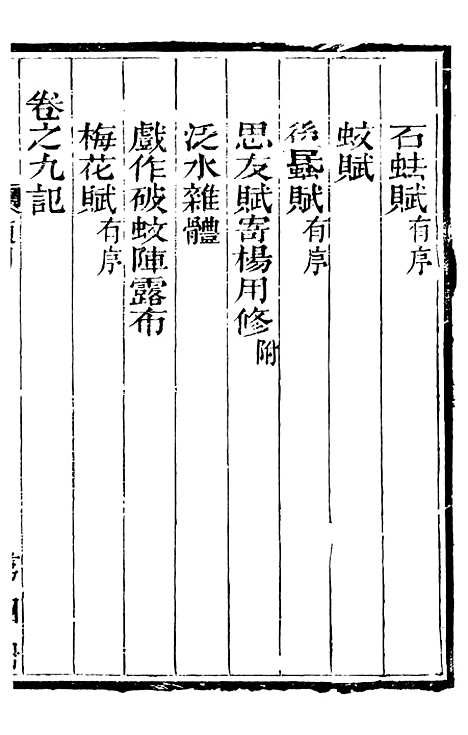 石蛙賦有序
蚊賦
後蝨賦有序
思友賦寄楊用修附
泛水雜體
戲作破蚊陣露布
梅花賦有序
卷之九記